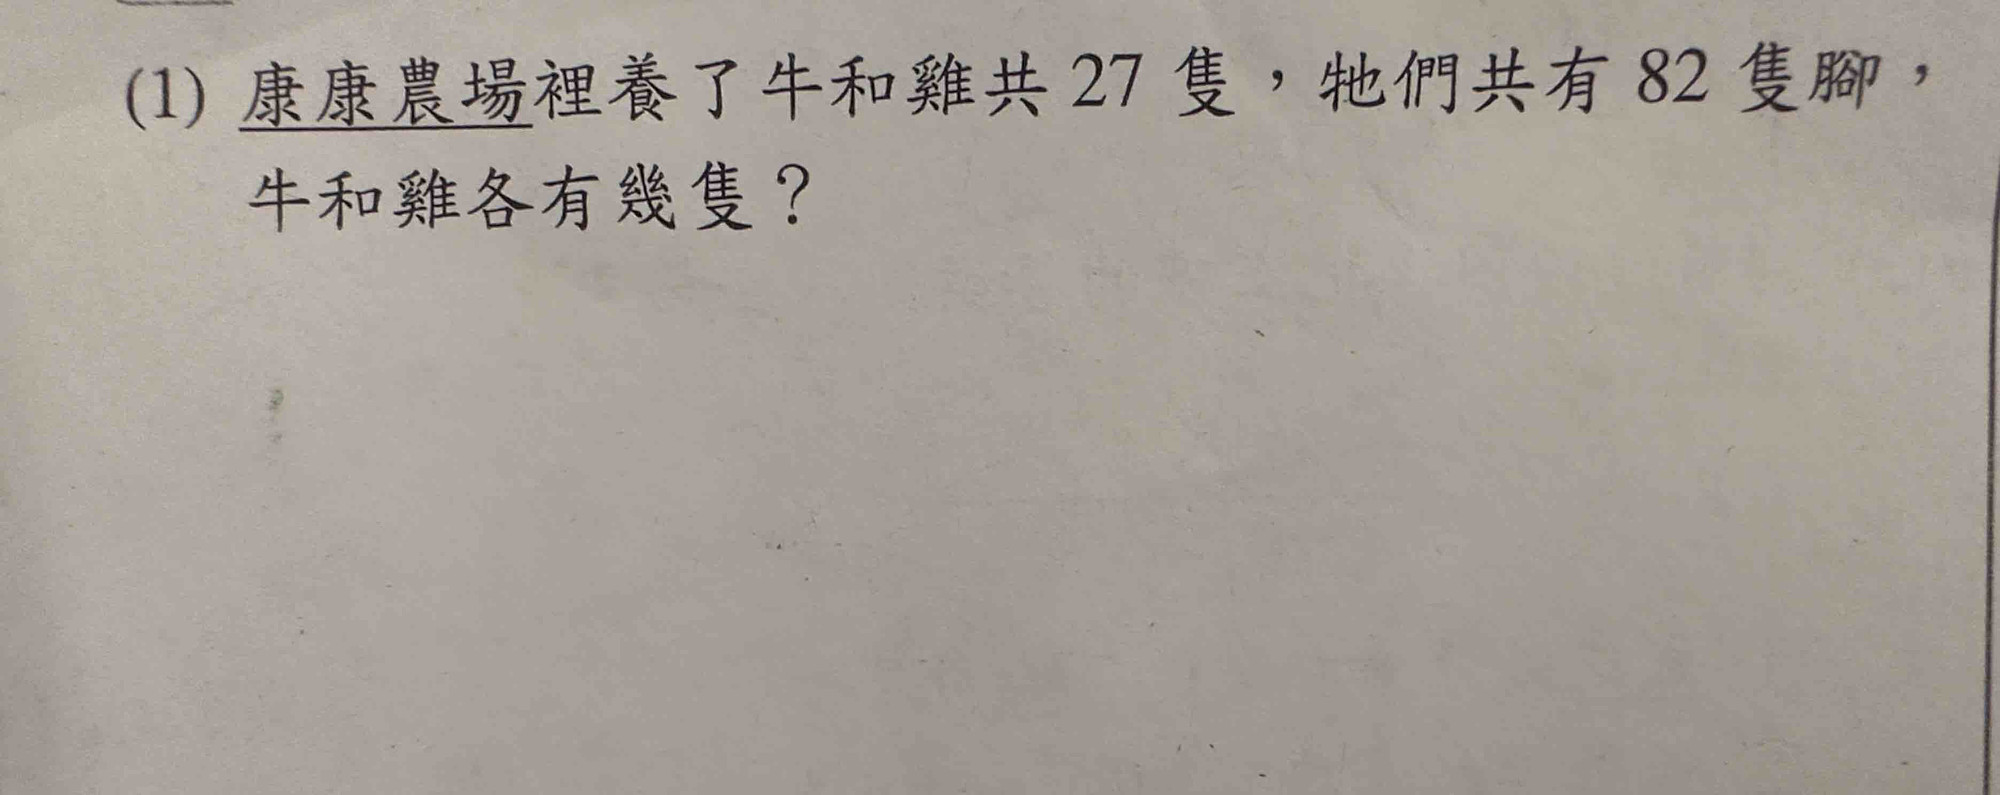 (1) 康康農場裡養了牛和雞共 27 隻，牠們共有 82 隻腳，
牛和雞各有幾隻？